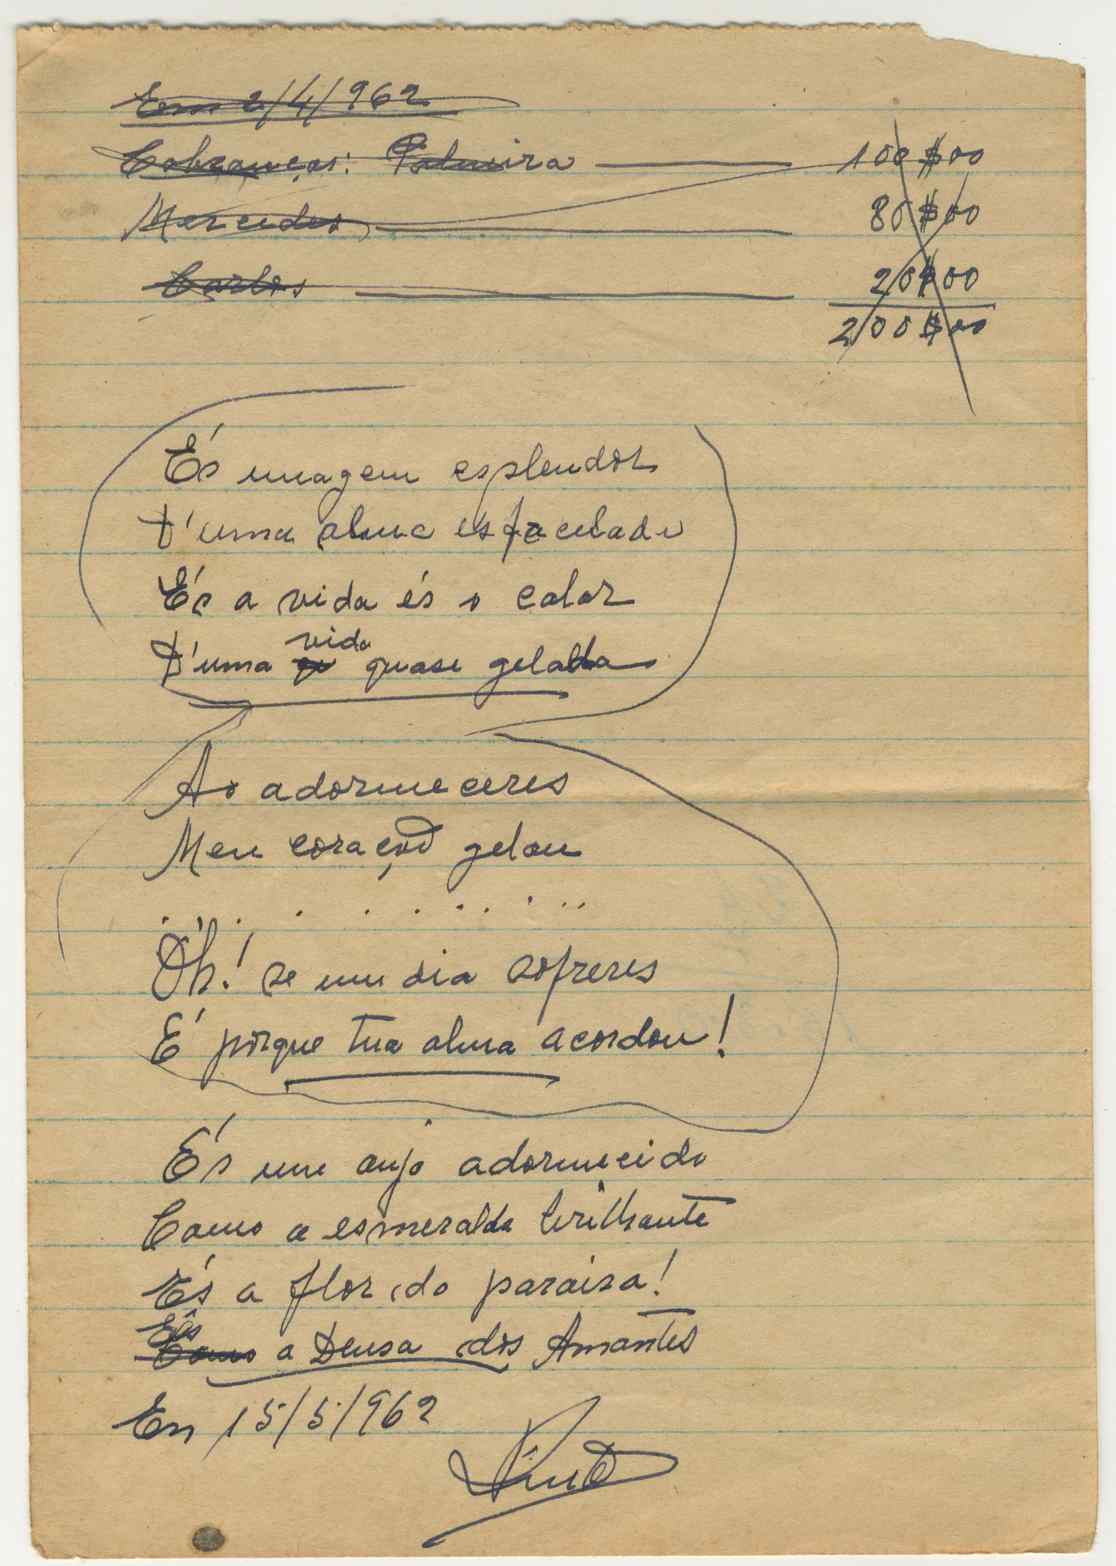 Em 2/4/962
Cobranças: Palmira 100$00
Mercedes 80$00
Carlos 20$00
200$00
És imagem esplendor
D'uma alma esfacelada
És a vida és o calor
vida
D'uma quase gelada
Ao adormeceres
Meu coração gelou
. . . . . . . . . . . .
Oh! se um dia sofreres
É porque tua alma acordou!
És um anjo adormecido
Como a esmeralda brilhante
És a flor do paraiso!
És
Como a Deusa dos Amantes
Em 15/5/962
Pinto